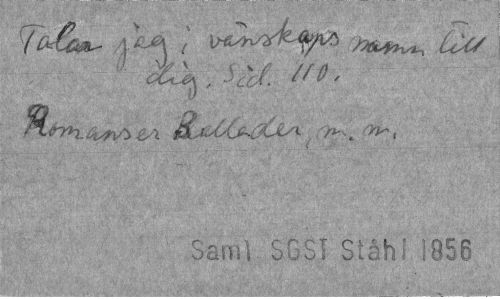 Talar jag i vänskaps namn till
dig. Sid. 110.
Romanser Ballader, m. m.
Saml SGST Ståhl 1856